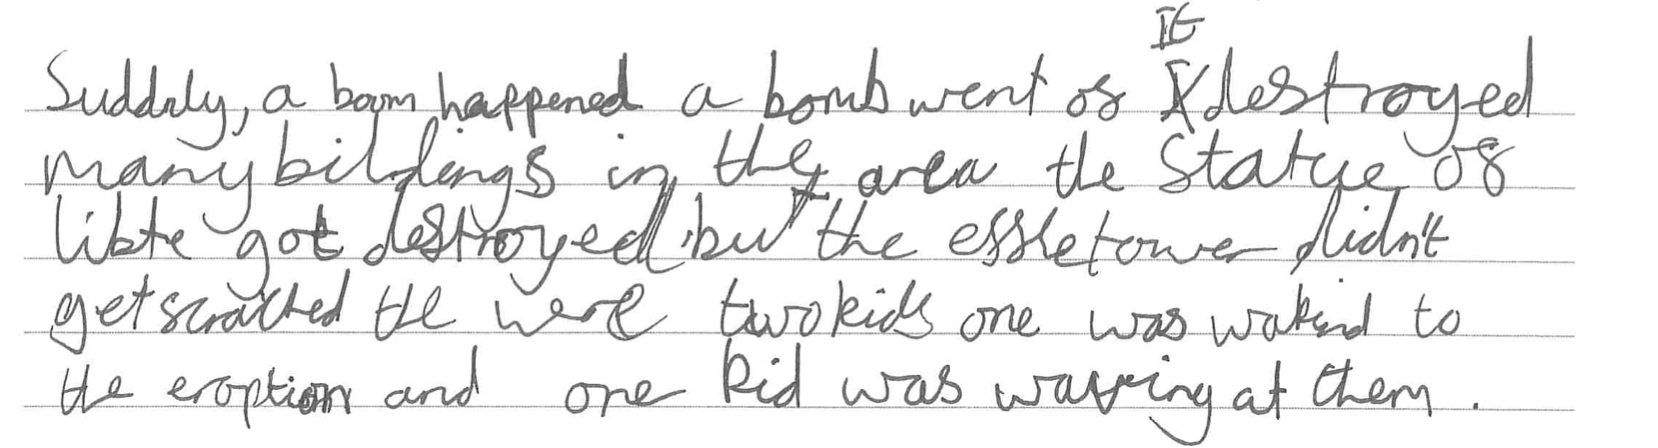 Suddnly, a boom happened a bomb went of It destroyed
many bildings in the area the Statue of
libte got destroyed but the effletower didn't
get scratched the were two kids one was wakind to
the eroption and one kid was waving at them.